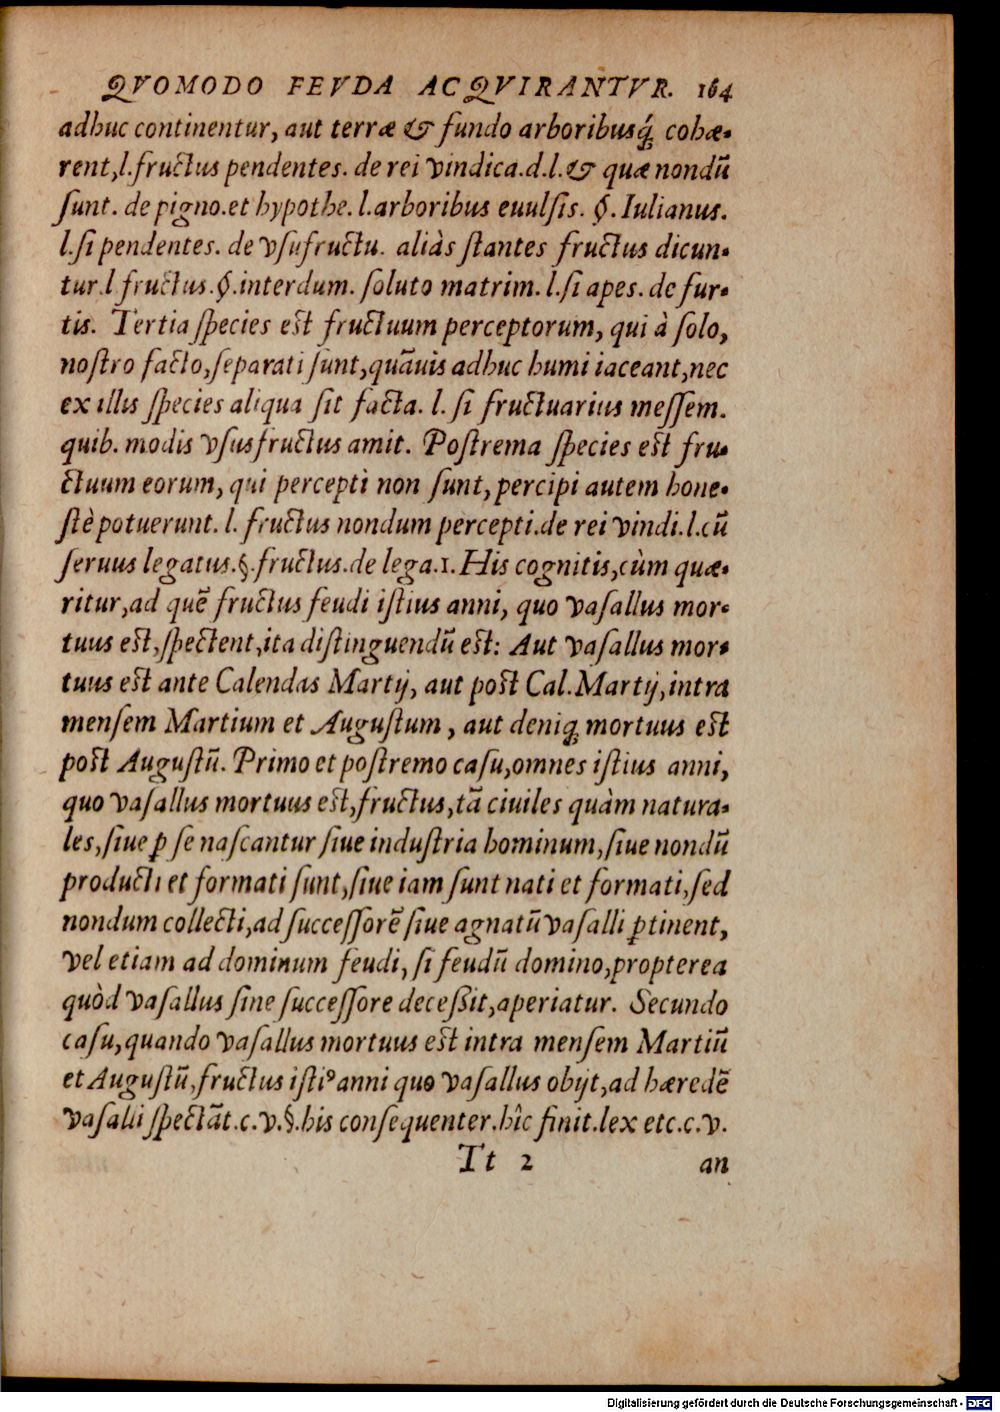 QVOMODO FEVDA ACQVIRANTVR. 164
adhuc continentur, aut terræ & fundo arboribusq́; cohæ-
rent, l. fructus pendentes. de rei vindica. d. l. & quæ nondū
ſunt. de pigno. et hypothe. l. arboribus euulſis. §. Iulianus.
l. ſi pendentes. de vſufructu. aliàs ſtantes fructus dicun-
tur. l fructus. §. interdum. ſoluto matrim. l. ſi apes. de fur-
tis. Tertia ſpecies est fructuum perceptorum, qui à ſolo,
noſtro facto, ſeparati ſunt, quāuis adhuc humi iaceant, nec
ex illis ſpecies aliqua ſit facta. l. ſi fructuarius meſſem.
quib. modis vſusfructus amit. Poſtrema ſpecies est fru-
ctuum eorum, qui percepti non ſunt, percipi autem hone-
ſtè potuerunt. l. fructus nondum percepti. de rei vindi. l. cū
ſeruus legatus. §. fructus. de lega. 1. His cognitis, cùm quæ-
ritur, ad quē fructus feudi iſtius anni, quo vaſallus mor-
tuus est, ſpectent, ita diſtinguendū est: Aut vaſallus mor-
tuus est ante Calendas Martij, aut post Cal. Martij, intra
menſem Martium et Auguſtum, aut deniq; mortuus est
post Auguſtū. Primo et poſtremo caſu, omnes iſtius anni,
quo vaſallus mortuus est, fructus, tā ciuiles quàm natura-
les, ſiue ꝑ ſe naſcantur ſiue induſtria hominum, ſiue nondū
producti et formati ſunt, ſiue iam ſunt nati et formati, ſed
nondum collecti, ad ſucceſſorē ſiue agnatū vaſalli ꝑtinent,
vel etiam ad dominum feudi, ſi feudū domino, propterea
quòd vaſallus ſine ſucceſſore deceßit, aperiatur. Secundo
caſu, quando vaſallus mortuus est intra menſem Martiū
et Auguſtū, fructus iſtiꝰ anni quo vaſallus obijt, ad hæredē
vaſalli ſpectāt. c. v. §. his conſequenter. hîc finit. lex etc. c. v.
Tt 2 an
Digitalisierung gefördert durch die Deutsche Forschungsgemeinschaft - DFG